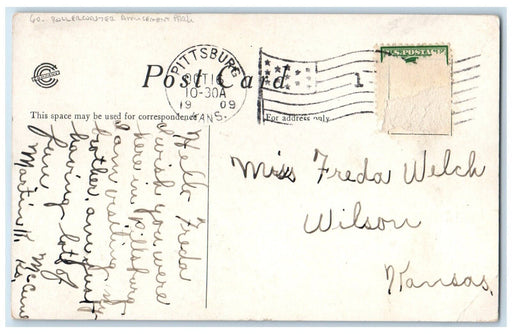 60. ROLLERCOASTER AMUSEMENT PARK
Post Card
PITTSBURG
OCT 16
10-30A
1909
KANS.
1
U.S. POSTAGE
This space may be used for correspondence
For address only
Hello Freda
I wish you were
here in pittsburg
I am visiting my
brother. am just
having lots of
fun
Martin K.
Ks.
Miss Freda Welch
Wilson
Kansas.